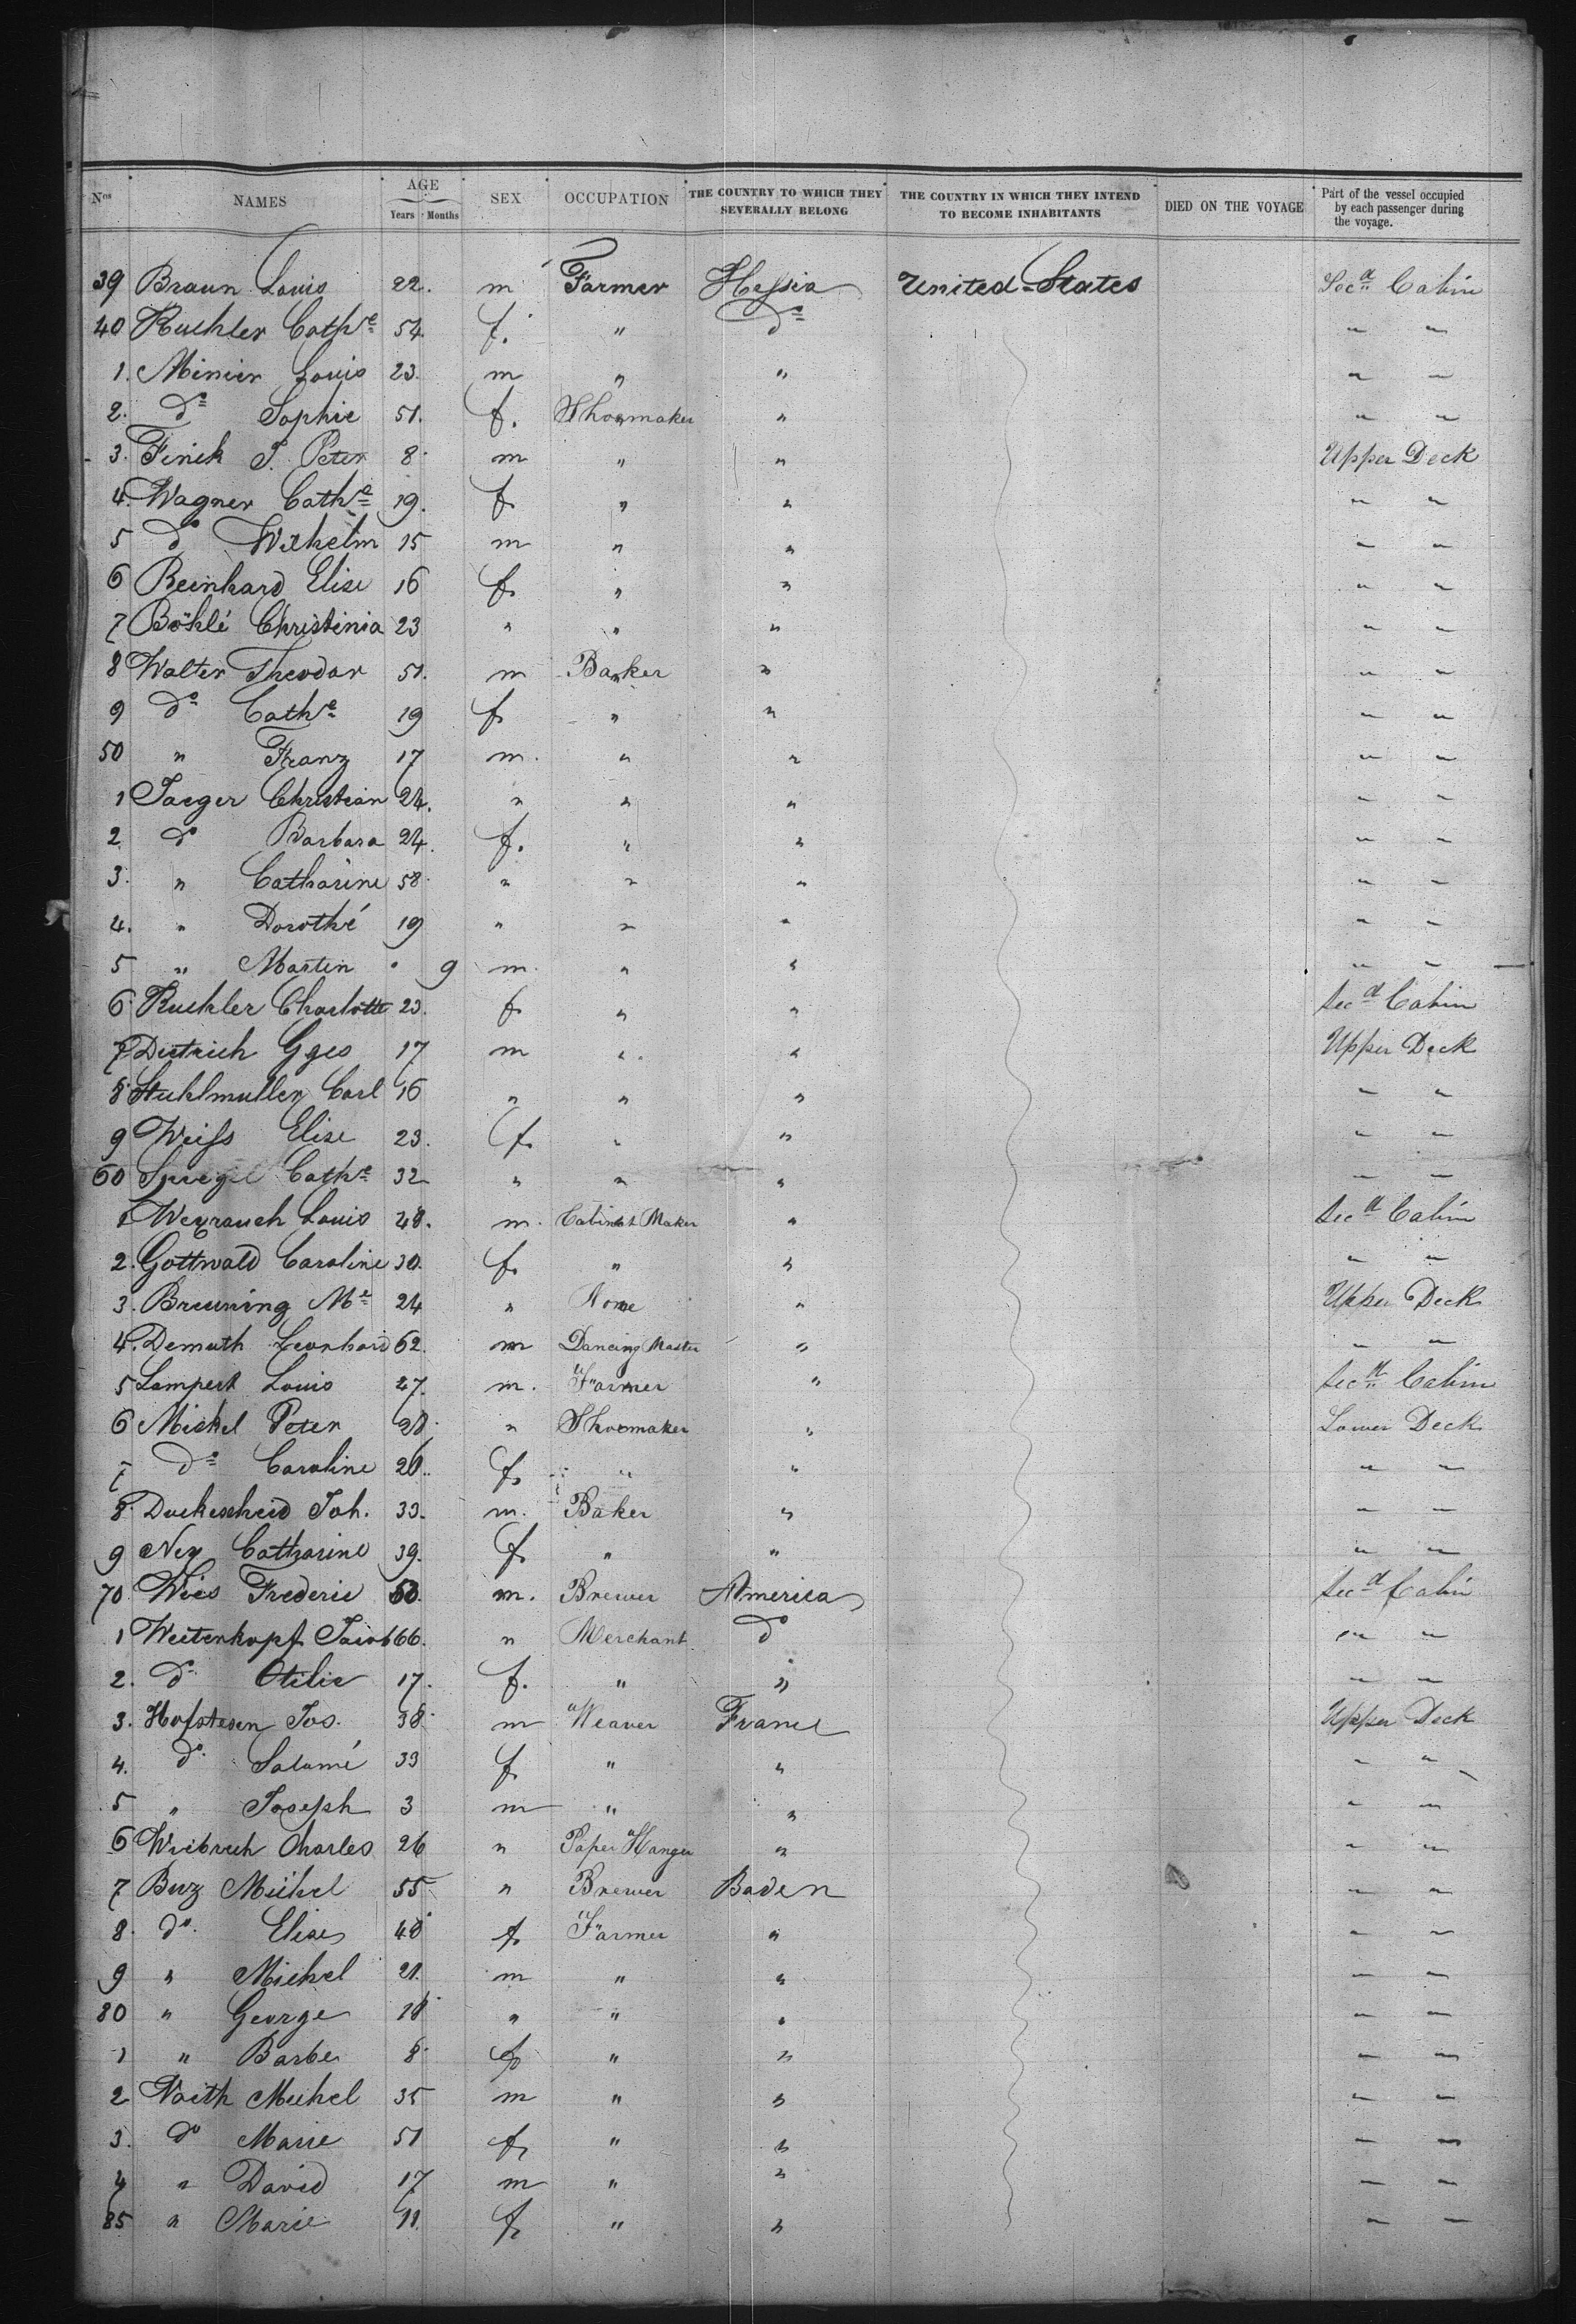 Nos NAMES AGE Years Months SEX OCCUPATION THE COUNTRY TO WHICH THEY SEVERALLY BELONG THE COUNTRY IN WHICH THEY INTEND TO BECOME INHABITANTS DIED ON THE VOYAGE Part of the vessel occupied by each passenger during the voyage.
39 Braun Louis 22. m Farmer Hessia United-States Secd Cabin
40 Ruchler Cathe 54. f. " do " "
1. Minier Louis 23. m " " " "
2. do Sophie 51. f. Shoemaker " " "
3. Finck J. Peter 8 m " " Upper Deck
4. Wagner Cathe 19. f " " " "
5 do Wilhelm 15 m " " " "
6 Reinhard Elise 16 f. " " " "
7 Böhlé Christinia 23 " " " " "
8 Walter Theodor 51. m Baker " " "
9 do Cathe 19 f " " " "
50 " Franz 17 m. " " " "
1 Jaeger Christian 24. " " " " "
2 do Barbara 24. f. " " " "
3. " Catharine 58 " " " " "
4. " Dorothé 19 " " " " "
5 " Martin " 9 m. " " " "
6 Ruchler Charlotte 23. f " " Secd Cabin
7 Dietrich Gges 17 m " " Upper Deck
8 Stuhlmuller Carl 16 " " " " "
9 Weiss Elise 23. f. " " " "
60 Spiegel Cathe 32 " " " " "
1 Weyrauch Louis 28. m. Cabinet Maker " Secd Cabin
2. Gottwald Caroline 30. f. " " " "
3. Breuning Me 24 " None " Upper Deck
4. Demuth Leonhard 62. m Dancing Master " " "
5 Lampert Louis 27. m. Farmer " Secd Cabin
6 Michel Peter 28 " Shoemaker " Lower Deck
7 do Caroline 26. f. " " " "
8. Duckescheid Joh. 33. m. Baker " " "
9 Ney Catharine 39. f. " " " "
70. Wies Frederic 60. m. Brewer America Secd Cabin
1 Weitenkopf Jacob 66. " Merchant do " "
2. do Otilie 17. f. " " " "
3. Hofstesen Jos. 38. m Weaver France Upper Deck
4. do Salomé 33 f " " " "
5 " Joseph 3 m " " " "
6 Wiebrech Charles 26 " Paper Hanger " " "
7 Burz Michel 55 " Brewer Baden " "
8. do Elise 48 f. Farmer " " "
9 " Michel 21. m " " " "
80 " George 18 " " " " "
1 " Barbe 8 f " " " "
2 Voith Michel 35 m " " " "
3. do Marie 51 f. " " " "
4 " David 17 m " " " "
85 " Marie 11. f. " " " "